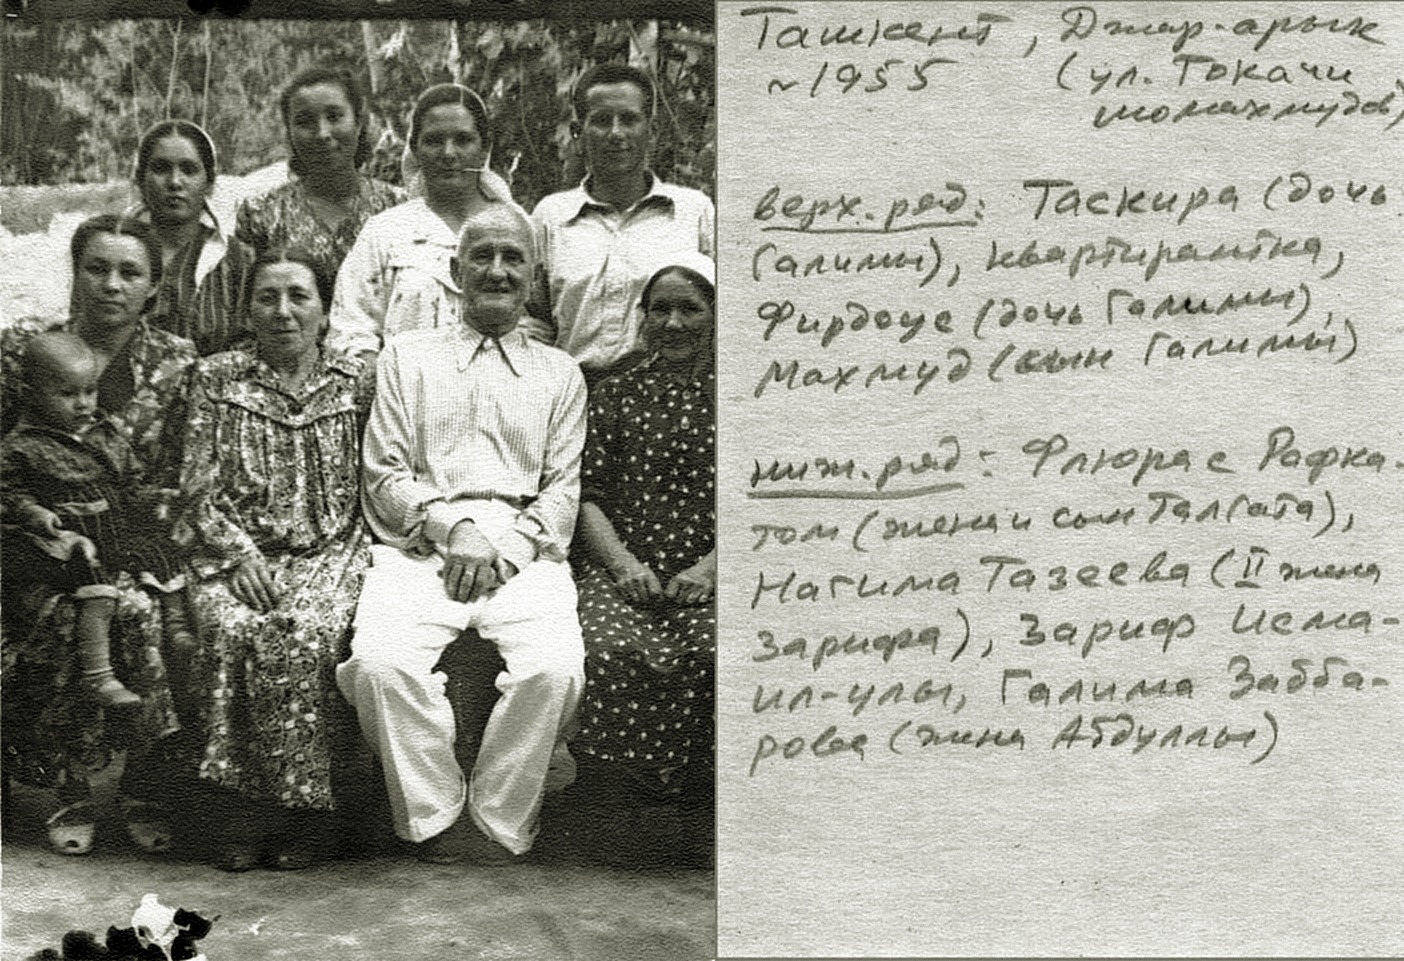 Ташкент, Джар-арык
~1955 (ул. Токачи
шомахмудов)
верх. ряд: Таскира (дочь
Галимы), квартирантка,
Фирдоус (дочь Галимы),
Махмуд (сын Галимы)
ниж. ряд: Флюра с Рафка-
том (жена и сын Талгата),
Нагима Тазеева (II жена
Зарифа), Зариф Исма-
ил-улы, Галима Забба-
рова (жена Абдуллы)